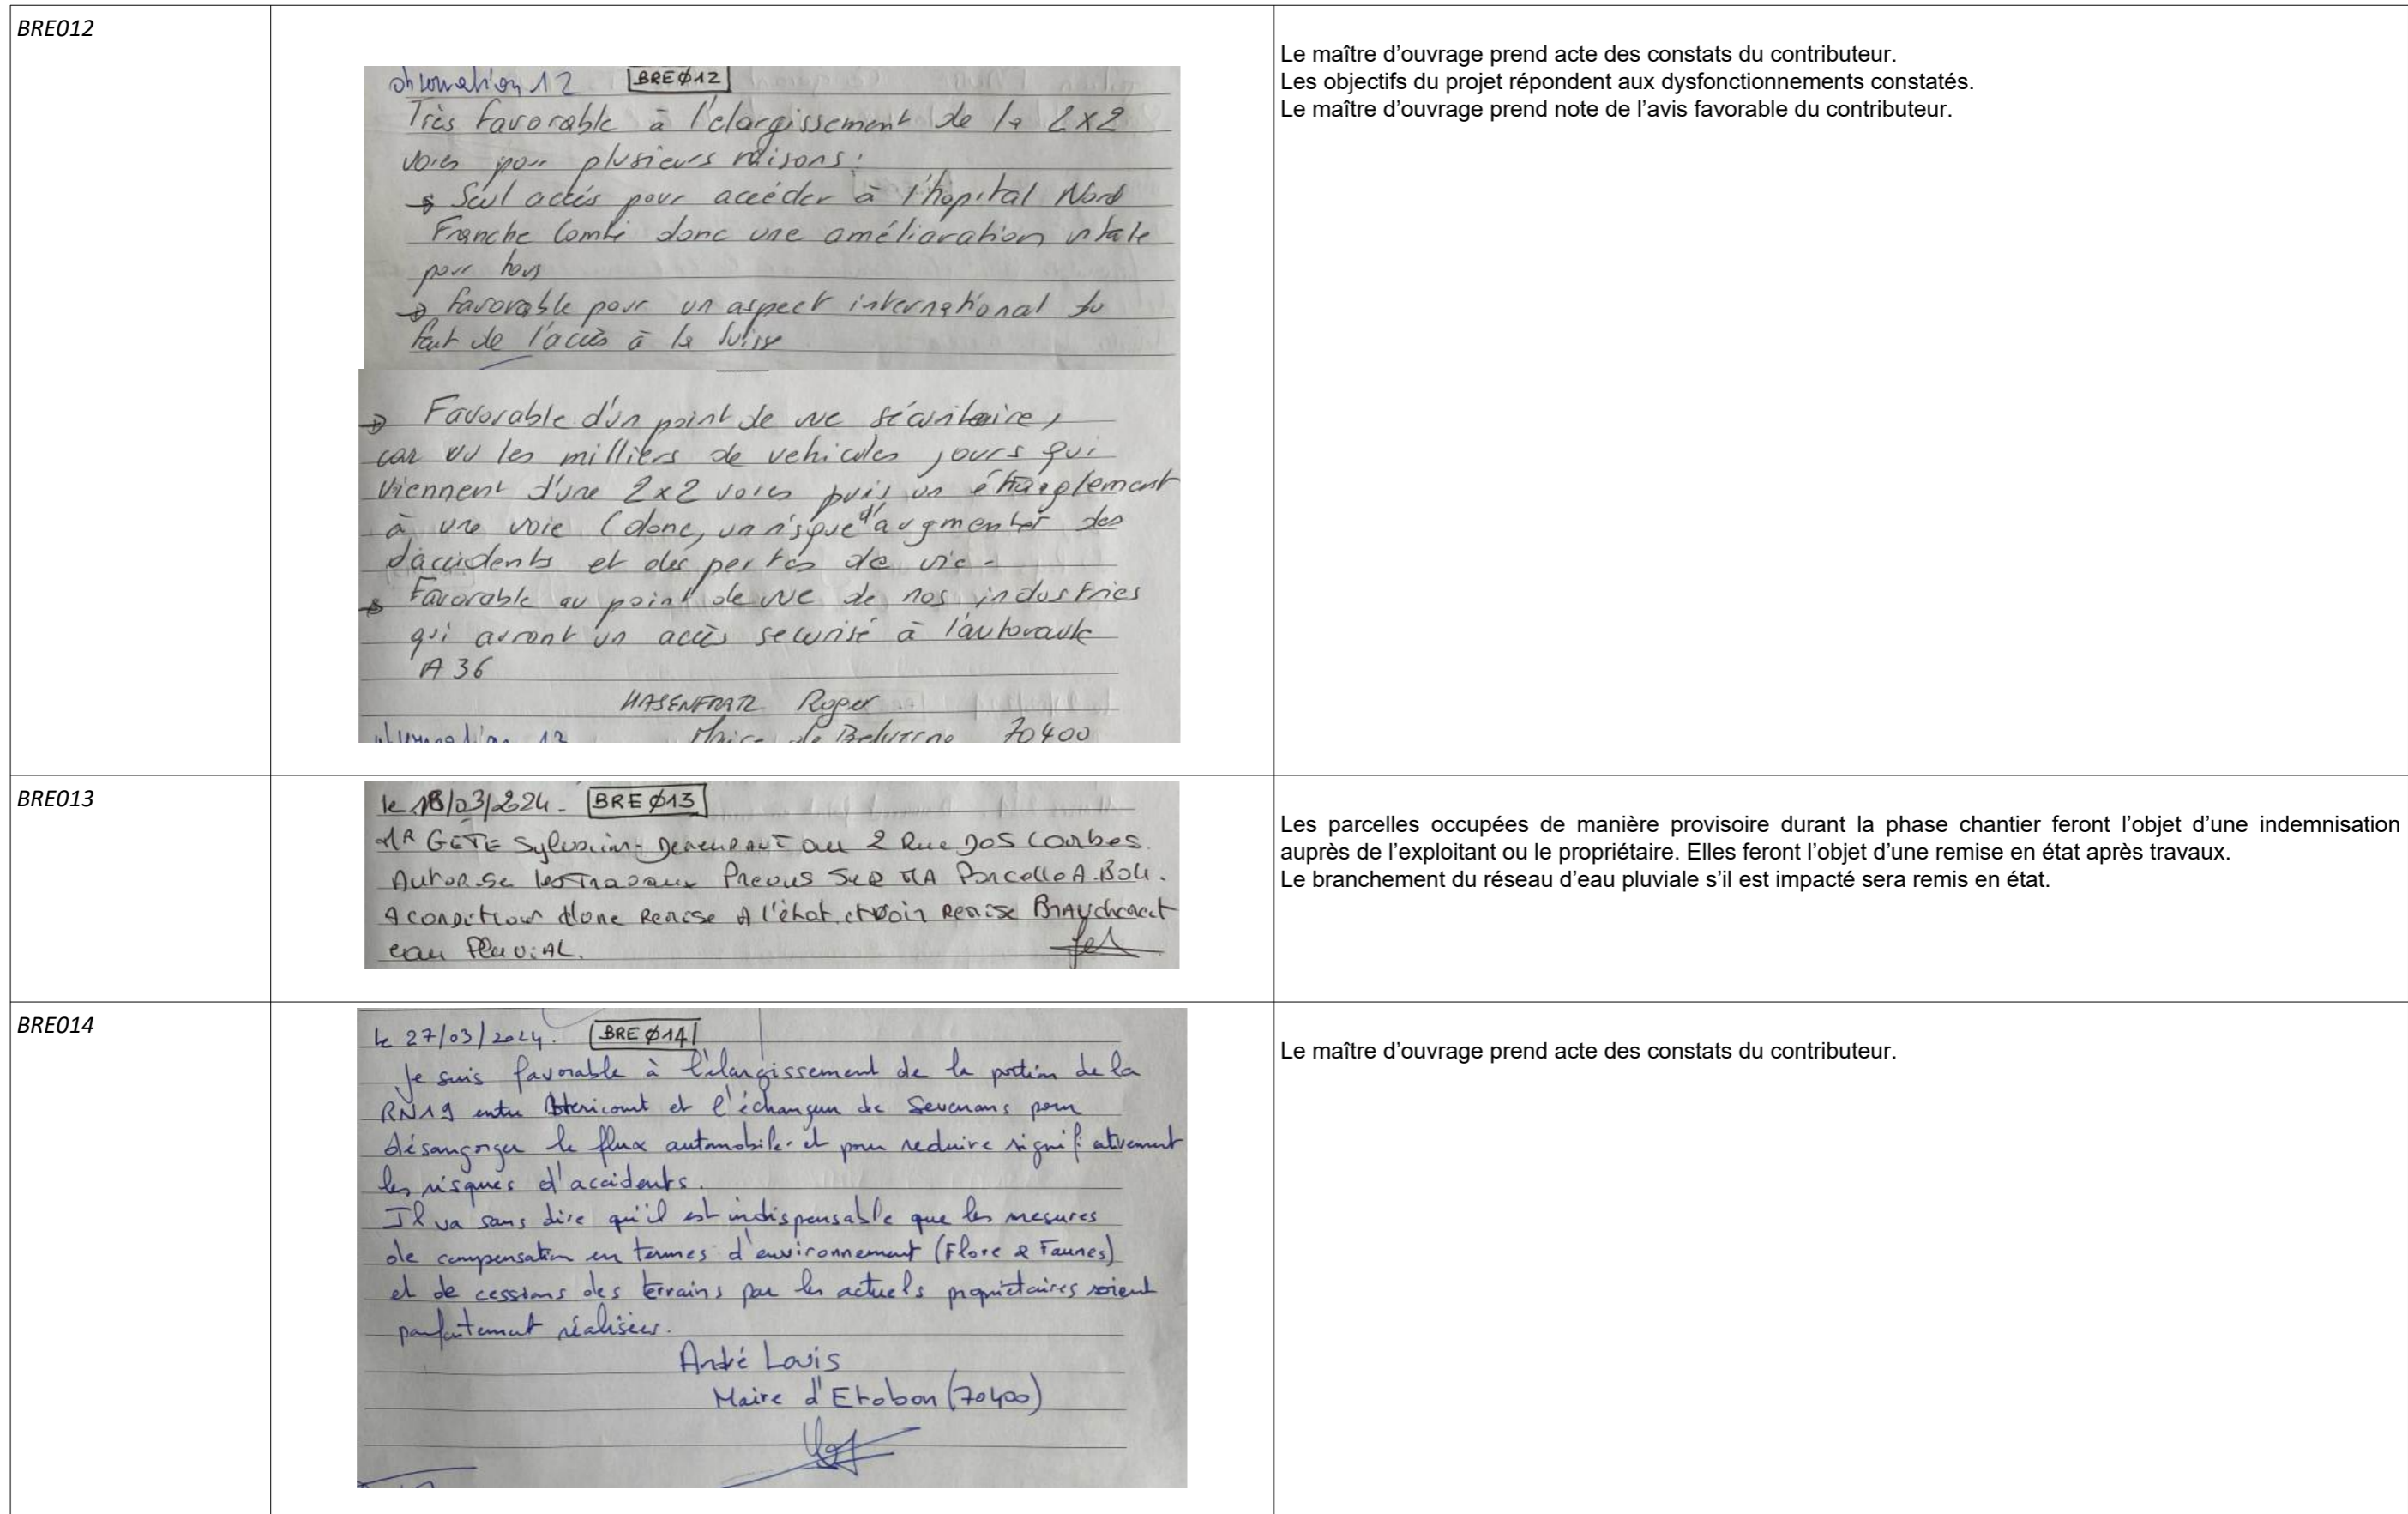 BRE012
observation 12 BREØ12
Très favorable à l'élargissement de la 2x2
voies pour plusieurs raisons:
→ Seul accés pour accéder à l'hopital Nord
Franche Comté donc une amélioration vitale
pour tous
→ favorable pour un aspect international du
fait de l'accès à la Suisse
→ Favorable d'un point de vue sécuritaire,
car vu les milliers de vehicules jours qui
viennent d'une 2x2 voies puis un étranglement
à une voie (donc, un risque d'augmenter des
d'accidents et des pertes de vie.
→ Favorable au point de vue de nos industries
qui auront un accès securisé à l'autoroute
A 36
HASENFRATZ Roger
observation 13 Maire de Belverne 70400
Le maître d'ouvrage prend acte des constats du contributeur.
Les objectifs du projet répondent aux dysfonctionnements constatés.
Le maître d'ouvrage prend note de l'avis favorable du contributeur.
BRE013
le 18/03/2024. BREØ13
MR GETE Sylvain - DEMEURANT au 2 Rue DOS
Autorise les Travaux Prevus SUR MA Parcelle
A condition d'une Remise A l'état et Remise Branchement
eau PLUVIAL.
Les parcelles occupées de manière provisoire durant la phase chantier feront l'objet d'une indemnisation
auprès de l'exploitant ou le propriétaire. Elles feront l'objet d'une remise en état après travaux.
Le branchement du réseau d'eau pluviale s'il est impacté sera remis en état.
BRE014
le 27/03/2024. BREØ14
Je suis favorable à l'élargissement de la portion de la
RN19 entre Héricourt et l'échangeur de Sevenans pour
désangorger le flux automobile et pour reduire significativement
les risques d'accidents.
Il va sans dire qu'il est indispensable que les mesures
de compensation en termes d'environnement (Flore & Faunes)
et de cessions des terrains par les actuels propriétaires soient
parfaitement réalisées.
André Louis
Maire d'Etobon (70400)
Le maître d'ouvrage prend acte des constats du contributeur.